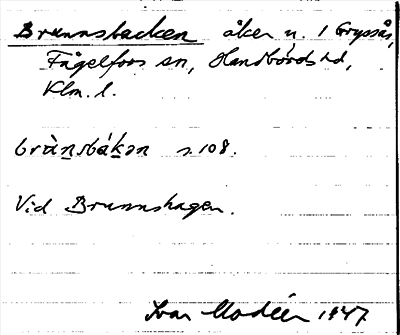 Brunnsbacken åker u. 1 Gryssås,
Fågelfors sn, Handbörds hd,
Klm. l.
brànsbákan s. 108.
Vid Brunnshagen.
Ivar Modéer 1947